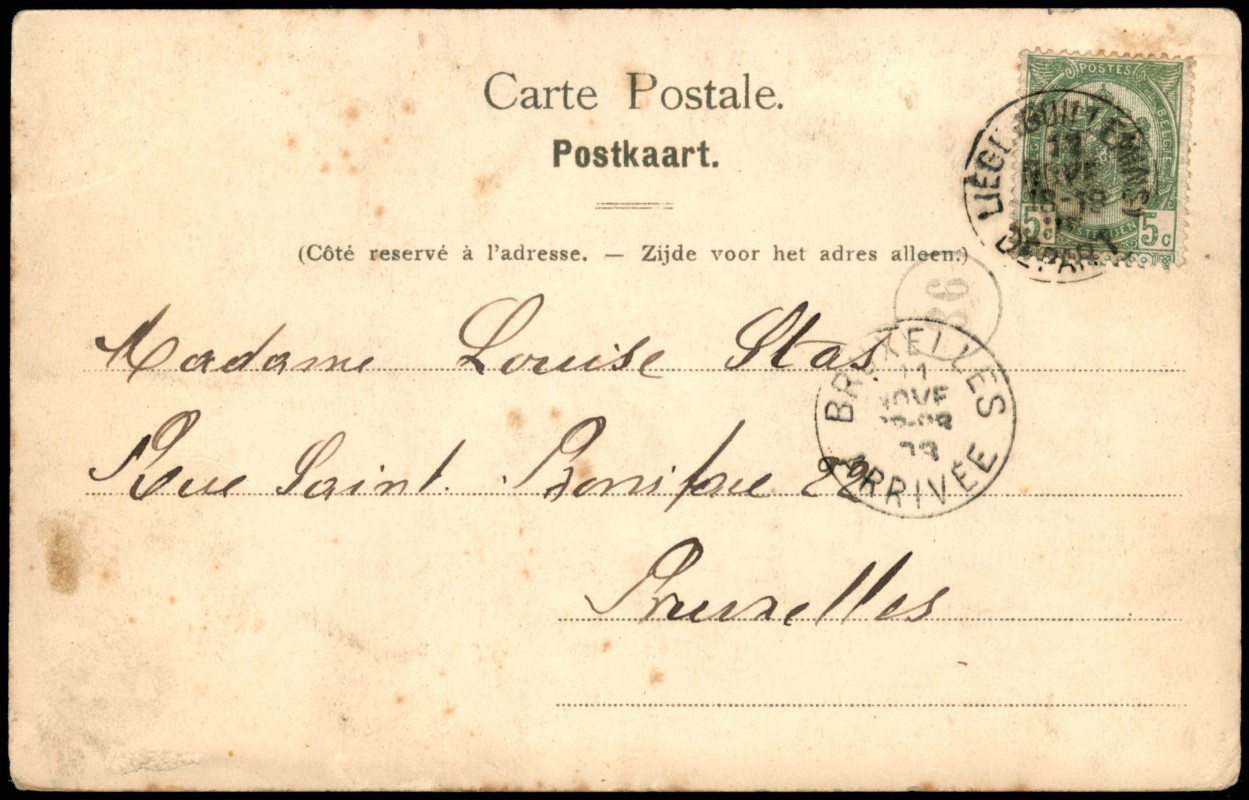 Carte Postale.
Postkaart.
(Côté reservé à l'adresse. — Zijde voor het adres alleen.)
POSTES
BELGIE
5c 5c
LIÉGE (GUILLEMINS)
11
NOVE
DÉPART
36
BRUXELLES
11
NOVE
ARRIVÉE
Madame Louise Stas.
Rue Saint Boniface 22
Bruxelles